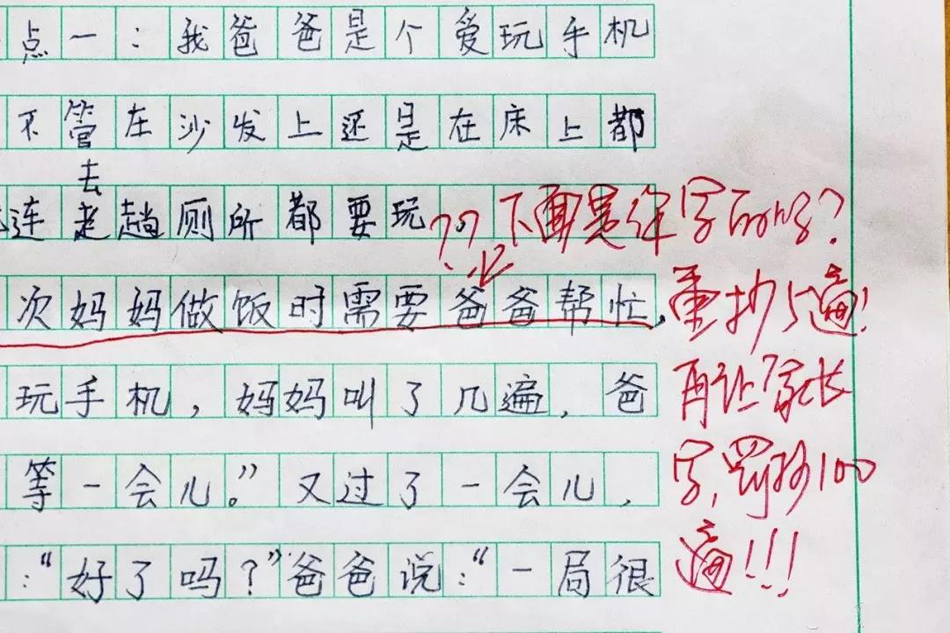 点一：我爸爸是个爱玩手机
不管在沙发上还是在床上都
去
连趟厕所都要玩
次妈妈做饭时需要爸爸帮忙，
玩手机，妈妈叫了几遍，爸
等一会儿。”又过了一会儿，
：“好了吗？”爸爸说：“一局很
？？下面是
重抄5遍！
再让家长
写，罚抄100
遍！！！